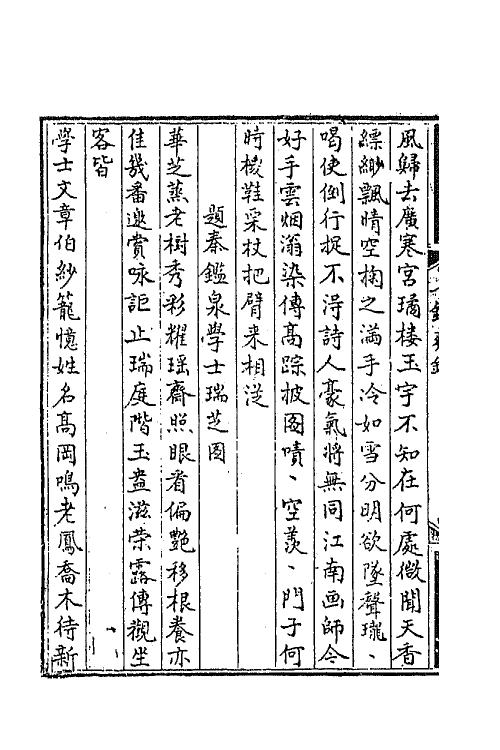 風歸去廣寒宮璚樓玉宇不知在何處微聞天香
縹緲飄晴空掬之滿手冷如雪分明欲墜聲瓏、
喝使倒行捉不淂詩人豪氣將無同江南画師今
好手雲烟滃染傳髙踪披圖嘖、空羨、門子何
時椶鞋采杖把臂来相從
題秦鑑泉學士瑞芝圖
華芝蒸老樹秀彩耀瑶齋照眼看偏艶移根養亦
佳幾番邀賞咏詎止瑞庭階玉盎滋荣露傳觀坐
客皆
學士文章伯紗籠憶姓名髙岡鳴老鳳喬木待新